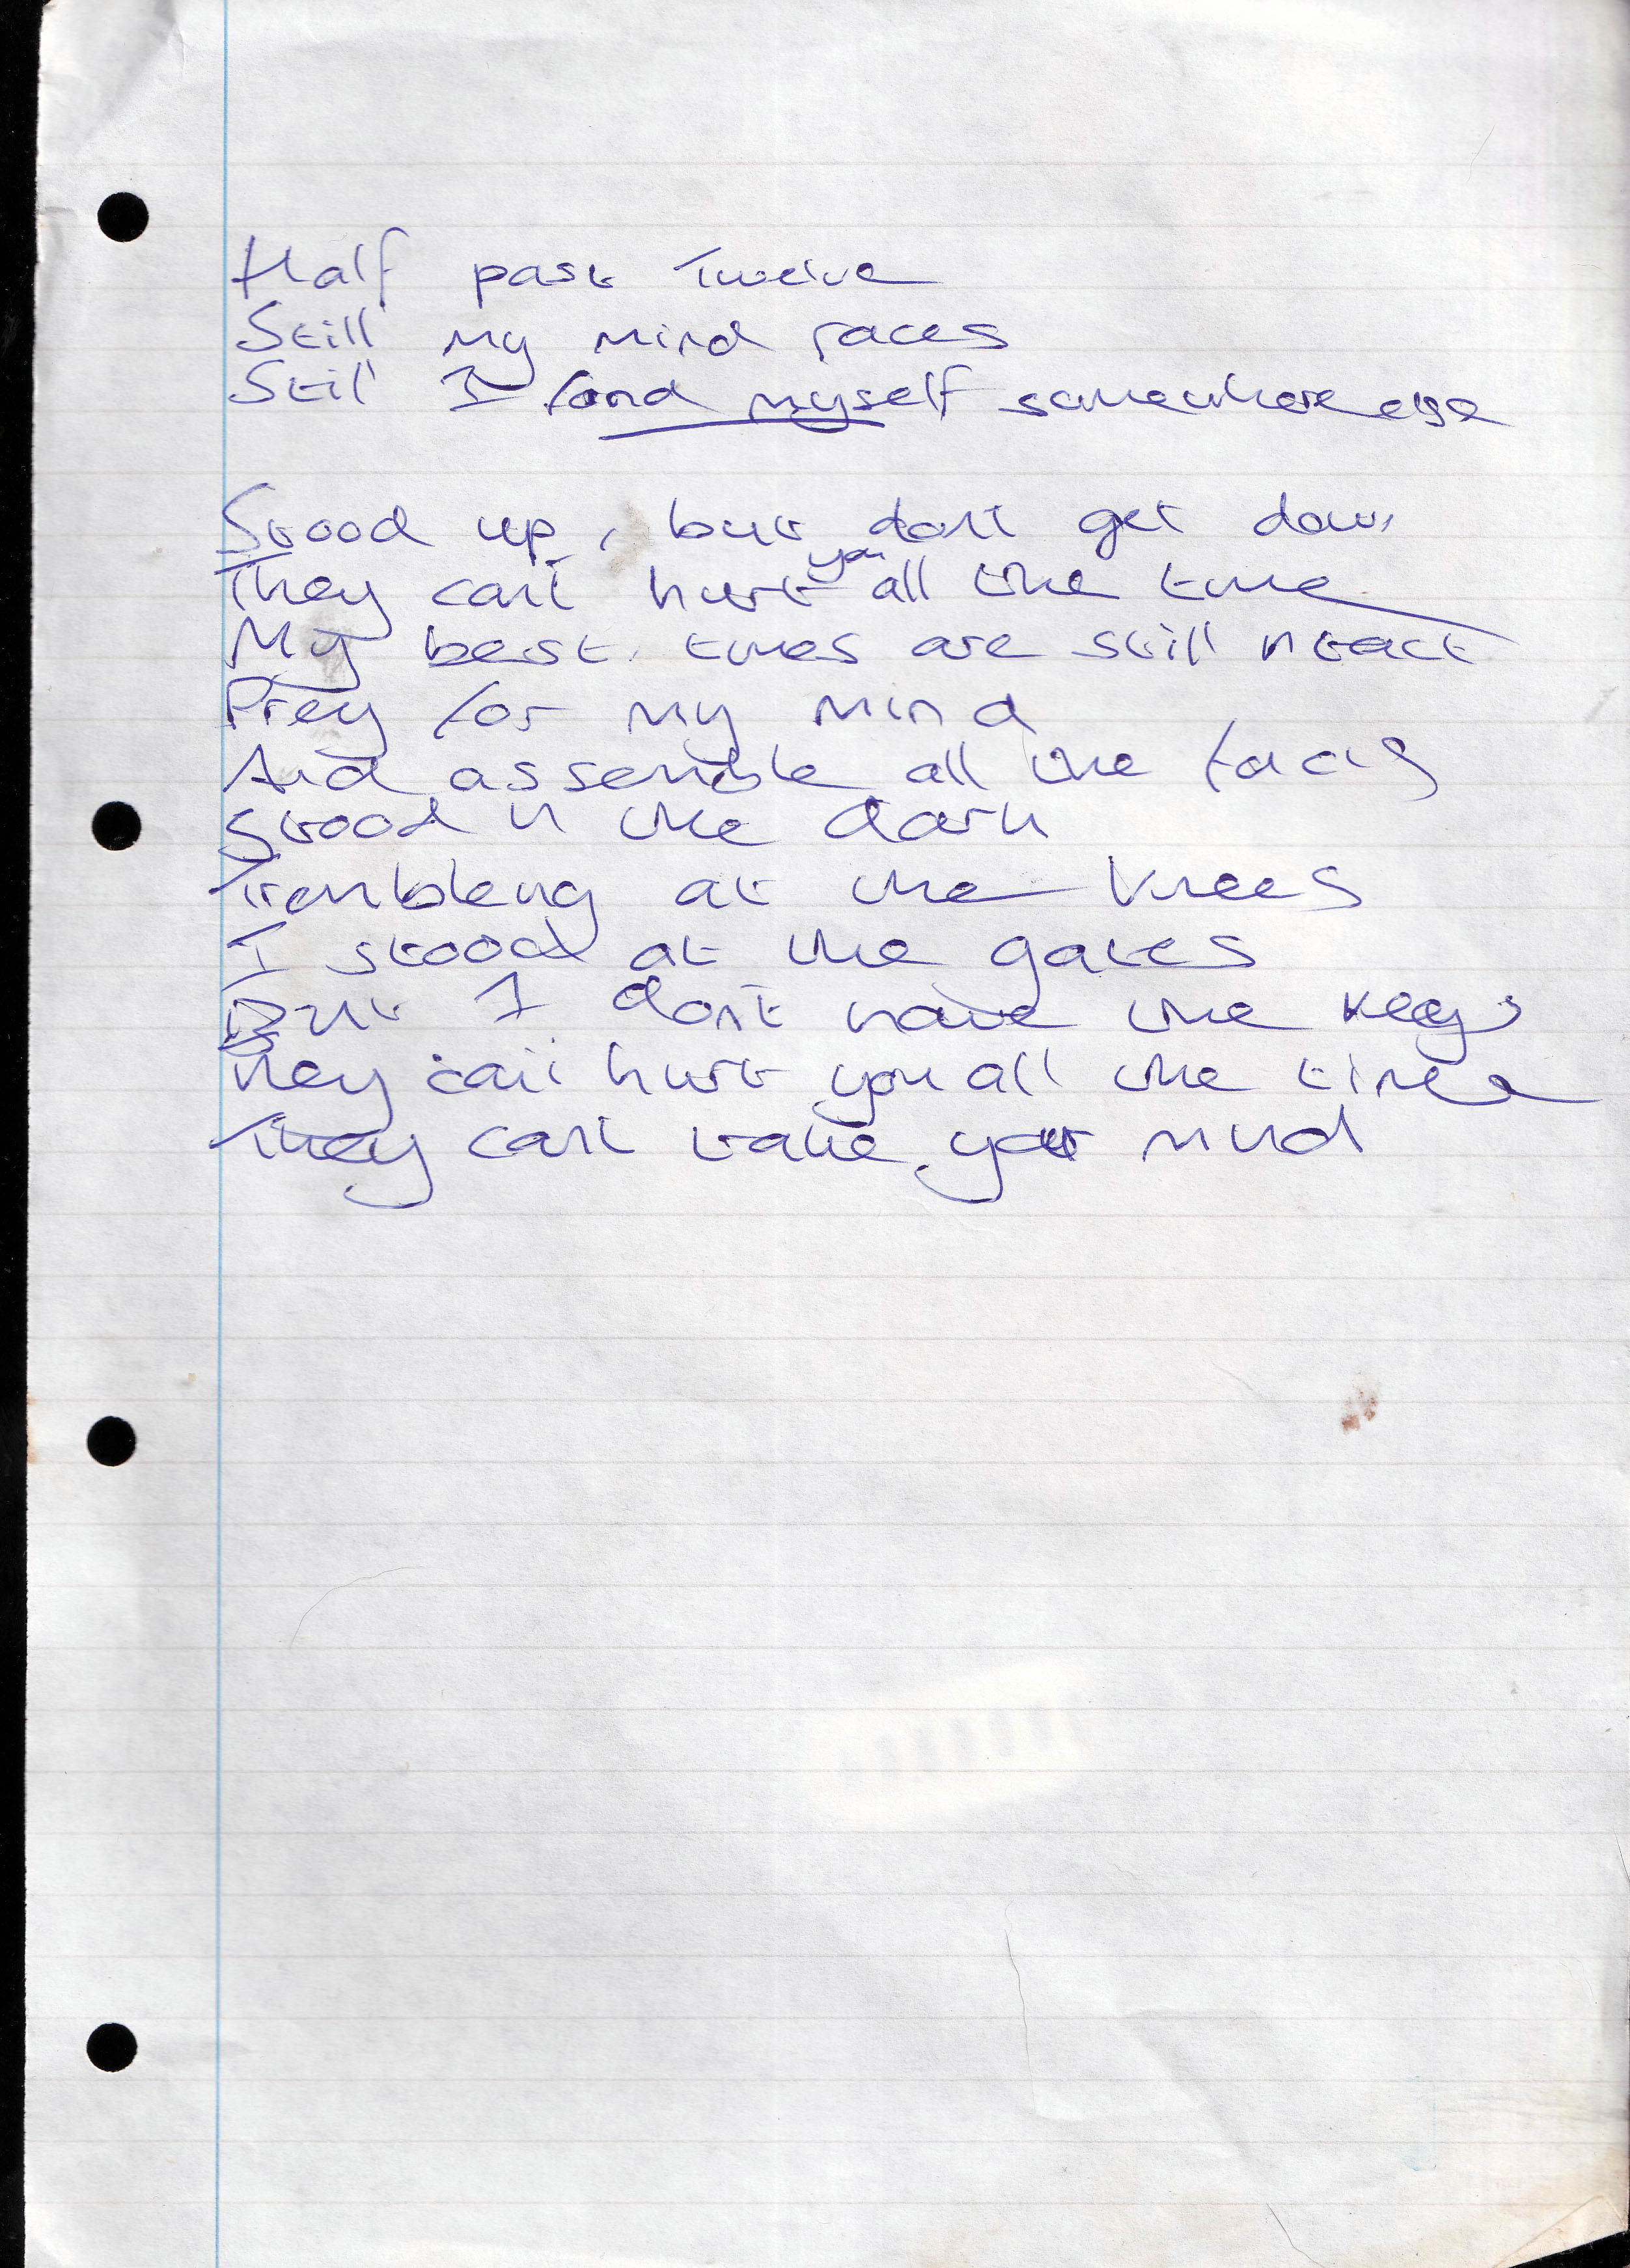 Half past Twelve
Still my mind races
Still I fond myself somewhere else
Stood up, but don't get down
They can't hurt you all the time
My best times are still intact
Prey for my mind
And assemble all the facts
Stood in the dark
Trembleing at the knees
I stood at the gates
But I don't have the keys
They can't hurt you all the time
They can't take your mind